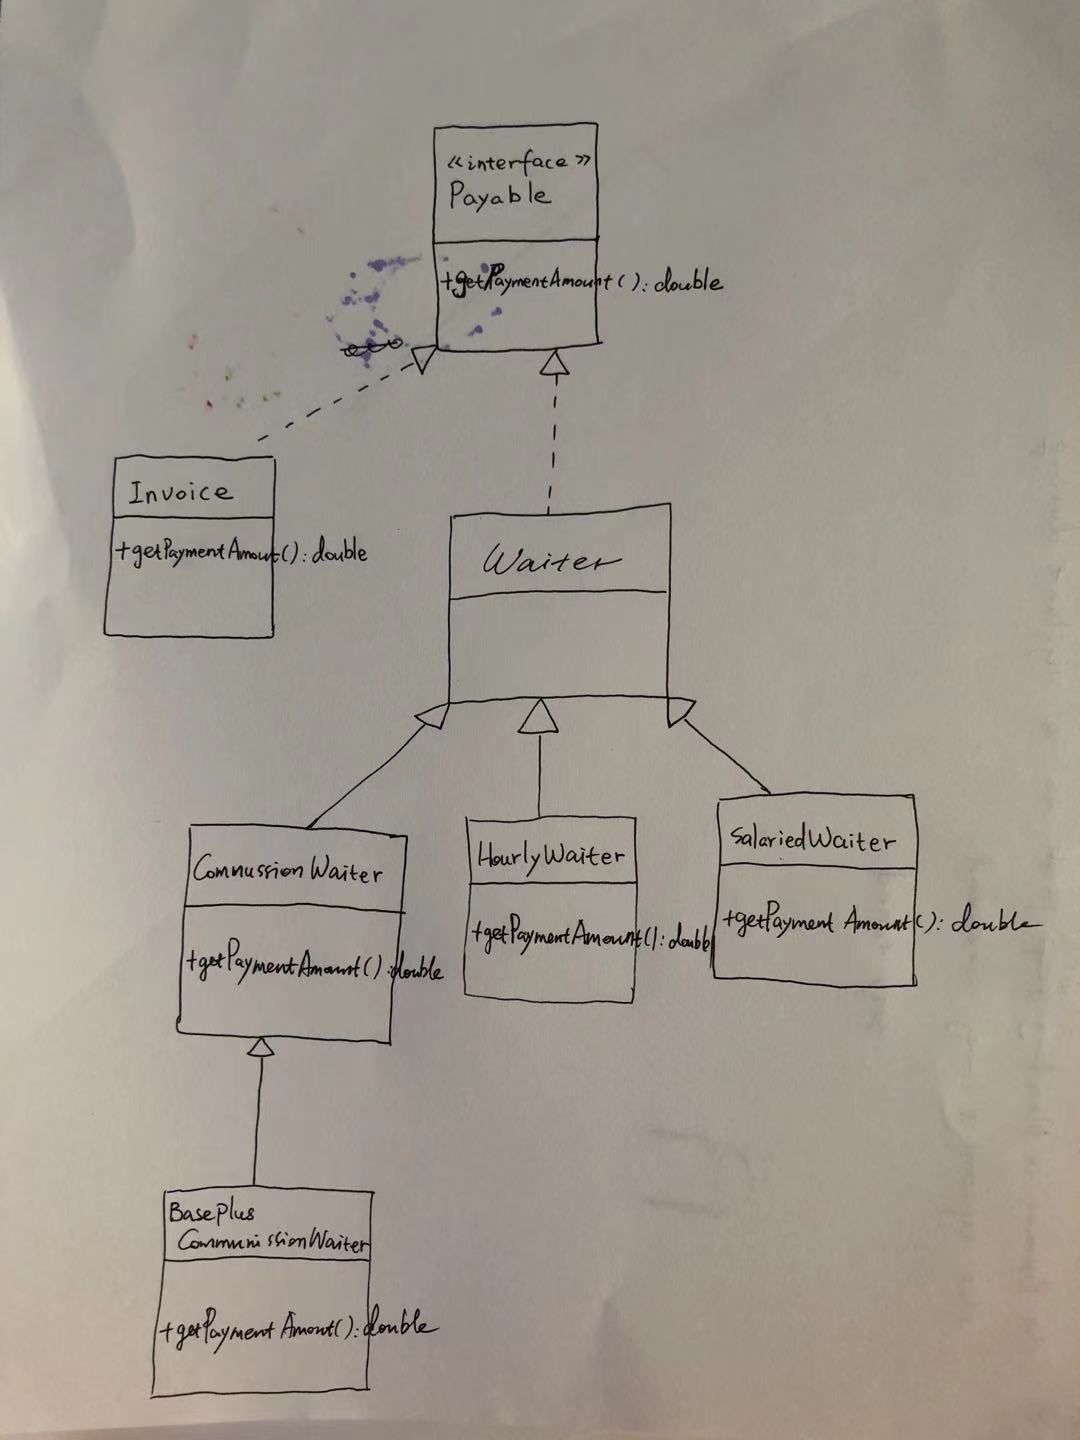 «interface»
Payable
+getPaymentAmount(): double
Invoice
+getPaymentAmount(): double
Waiter
CommissionWaiter
+getPaymentAmount(): double
HourlyWaiter
+getPaymentAmount(): double
SalariedWaiter
+getPayment Amount(): double
BasePlus
CommunissionWaiter
+getPayment Amount(): double